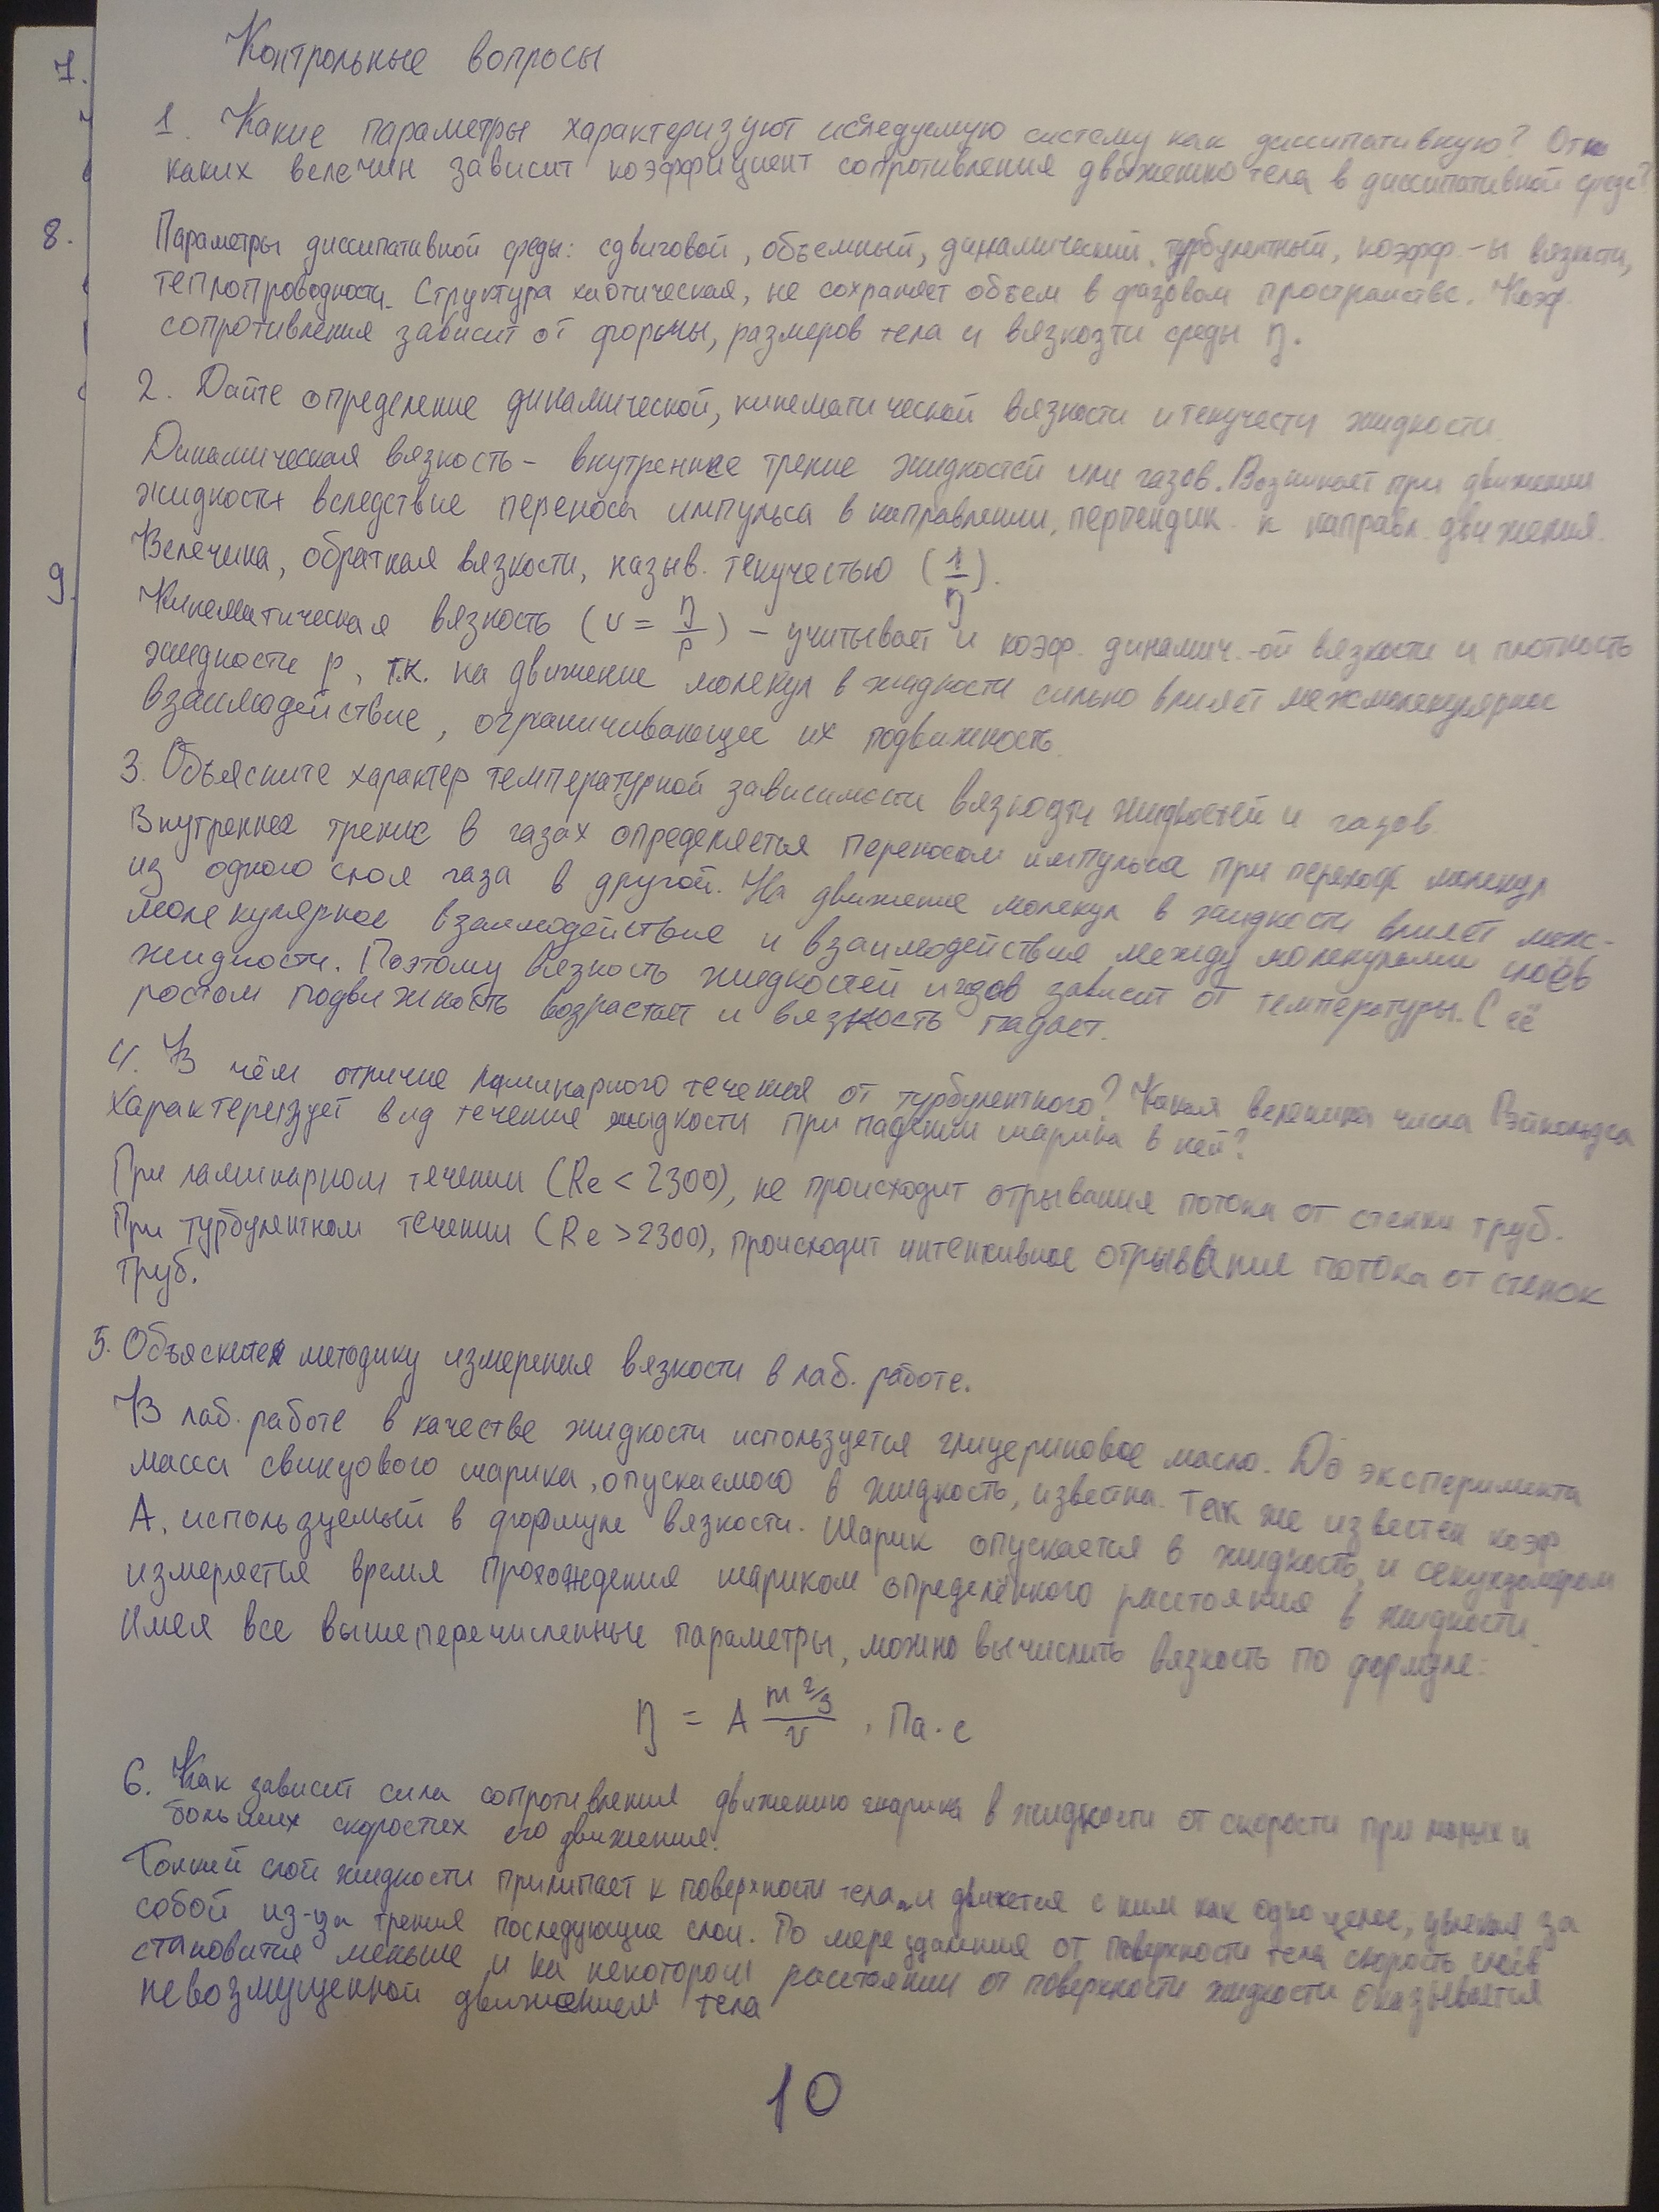 Контрольные вопросы
7.
1. Какие параметры характеризуют иследуемую систему как диссипативную? От
каких велечин зависит коэффициент сопротивления движению тела в диссипативной среде?
8.
Параметры диссипативной среды: сдвиговой, объемный, динамический, турбулентный, коэфф-ы вязкости,
теплопроводности. Структура хаотическая, не сохраняет объем в фазовом пространстве. Коэф.
сопротивления зависит от формы, размеров тела и вязкозти среды η.
2. Дайте определение динамической, кинематической вязкости и текучести жидкости.
Динамическая вязкость - внутреннее трение жидкостей или газов. Возникает при движении
жидкости вследствие переноса импульса в направлении, перпендик. к направл. движения.
Велечина, обратная вязкости, назыв. текучестью (1/η).
9.
Кинематическая вязкость (υ = η/ρ) - учитывает и коэф. динамич.-ой вязкости и плотность
жидкости ρ, т.к. на движение молекул в жидкости сильно влияет межмолекулярное
взаимодействие, ограничивающее их подвижность.
3. Объясните характер температурной зависимости вязкозти жидкостей и газов.
Внутреннее трение в газах определяется переносом импульса при переходе молекул
из одного слоя газа в другой. На движение молекул в жидкости влияет меж-
молекулярное взаимодействие и взаимодействия между молекулами слоёв
жидкости. Поэтому вязкость жидкостей и газов зависит от температуры. С её
ростом подвижность возрастает и вязкость падает.
4. В чём отличие ламинарного течения от турбулентного? Какая величина числа Рэйнольдса
характеризует вид течения жидкости при падении шарика в ней?
При ламинарном течении (Re < 2300), не происходит отрывания потока от стенки труб.
При турбулентном течении (Re > 2300), происходит интенсивное отрывание потока от стенок
труб.
5. Объясните методику измерения вязкости в лаб. работе.
В лаб. работе в качестве жидкости используется глицериновое масло. До эксперимента
масса свинцового шарика, опускаемого в жидкость, известна. Так же известен коэф
А, используемый в формуле вязкости. Шарик опускается в жидкость, и секундомером
измеряется время прохождения шариком определённого расстояния в жидкости.
Имея все вышеперечисленные параметры, можно вычислить вязкость по формуле:
η = A m^2/3 / v , Па·с
6. Как зависит сила сопротивления движению шарика в жидкости от скорости при малых и
больших скоростях его движения?
Тонкий слой жидкости прилипает к поверхности тела и движется с ним как одно целое, увлекая за
собой из-за трения последующие слои. По мере удаления от поверхности тела скорость слоёв
становится меньше и на некотором расстоянии от поверхности жидкости оказывается
невозмущенной движением тела
10